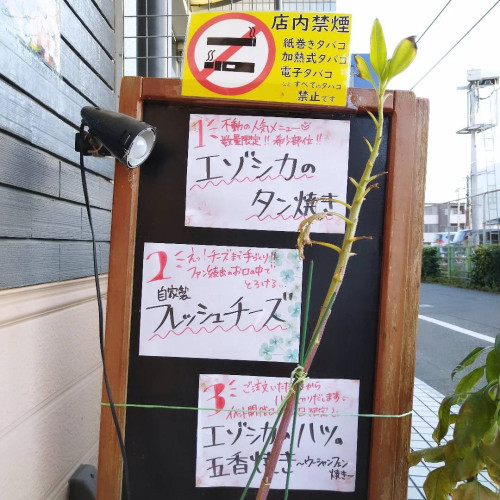 店内禁煙
紙巻きタバコ
加熱式タバコ
電子タバコ
すべてのタバコ
禁止です
1 不動の人気メニュー
数量限定!! 希少部位!!
エゾシカの
タン焼き
2 えっ!チーズまで手づくり!?
ファン続出のお口の中で
とろける…
自家製
フレッシュチーズ
3 ご注文 から
します
エゾシカのハツの
五香焼き
〜ウーシャンフェン
焼き〜